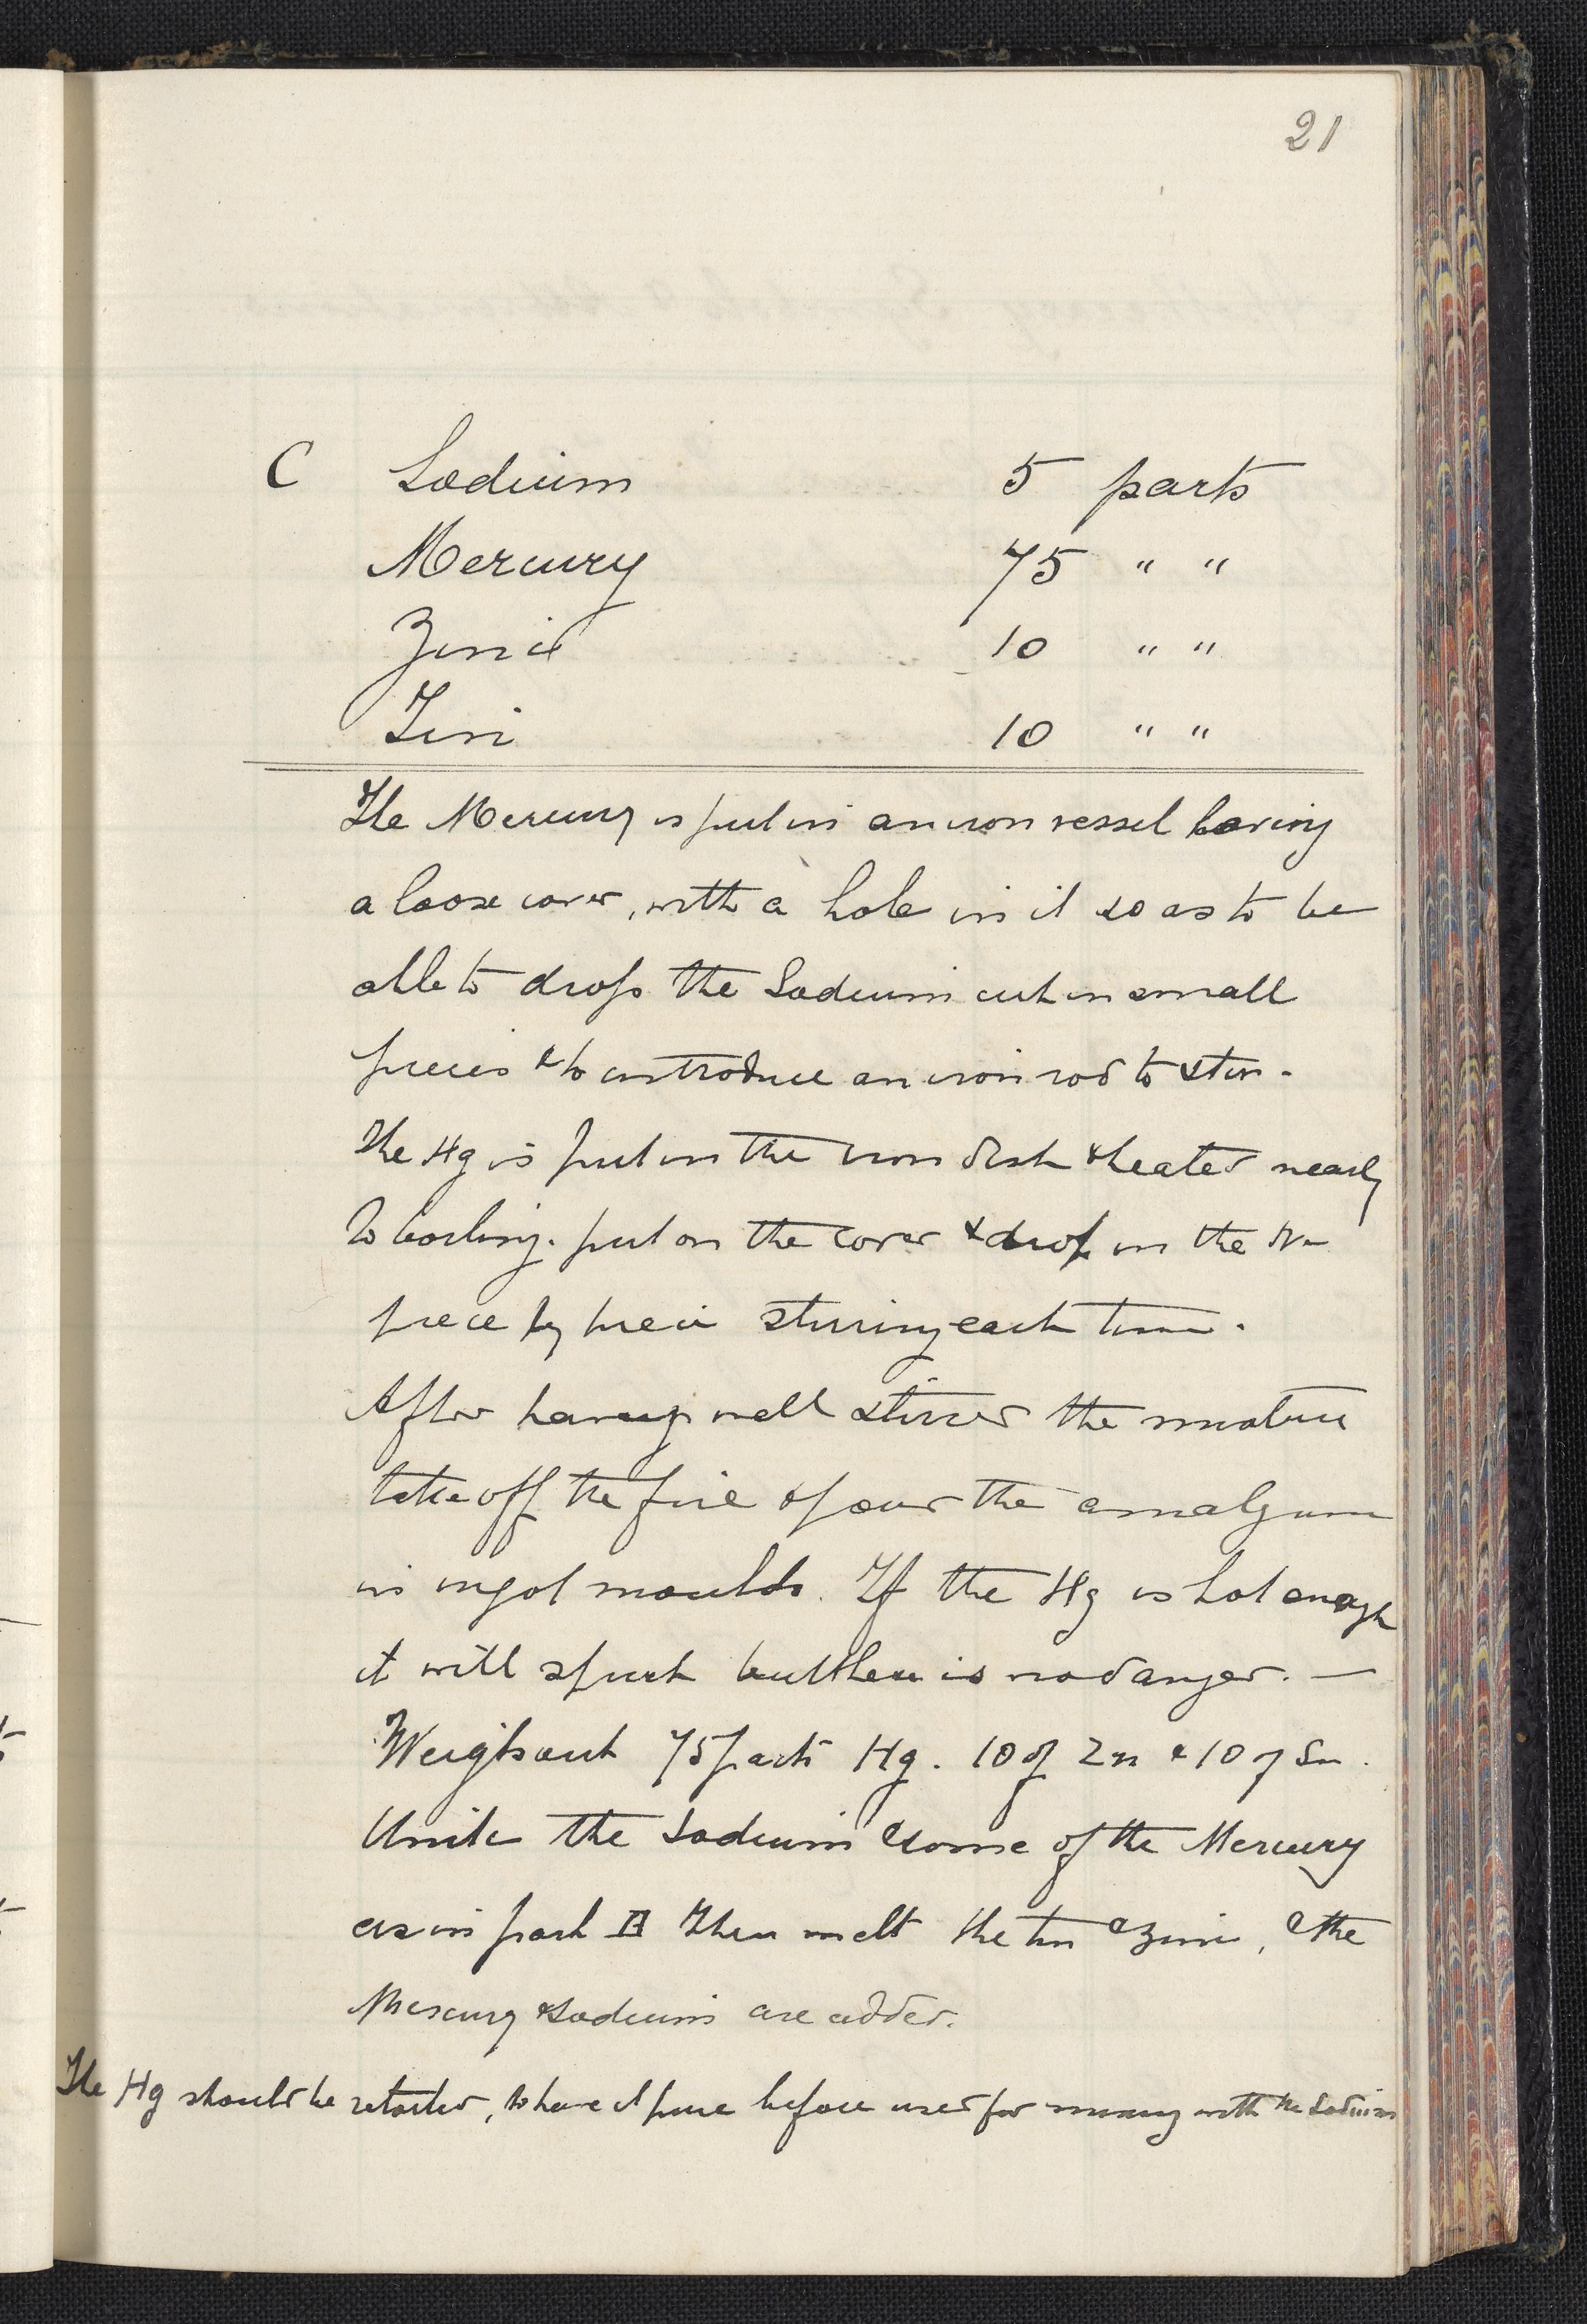 21
C Sodium 5 parts
Mercury 75 " "
Zinc 10 " "
Tin 10 " "
The Mercury is put in an iron vessel having
a loose cover, with a hole in it so as to be
able to drop the Sodium cut in small
pieces & to introduce an iron rod to stir.
The Hg is put in the iron dish & heated nearly
to boiling. put on the cover & drop in the Na
piece by piece stirring each time.
After having well stirred the mixture
take off the fire & pour the amalgam
in ingot moulds. If the Hg is hot enough
it will spurt but there is no danger. —
Weigh out 75 parts Hg. 10 of Zn & 10 of Sn.
Unite the Sodium & some of the Mercury
as in part B then melt the tin & zinc, & the
Mercury & Sodium are added.
The Hg should be retorted, to have it pure before used for mixing with the Sodium